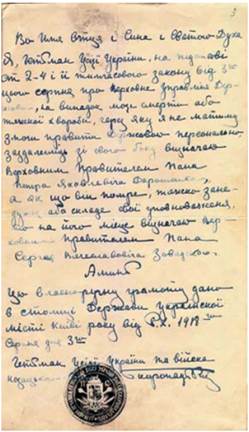 Во Имя Отця і Сина і Святого Духа
Я, Гетьман Усієї України, на підставі
ст 2-4-ї ії тимчасового закону від 3го
цього серпня про Верховне управління Дер-
жавою, на випадок моєї смерти або
тяжкої хвороби, через яку я не матиму
змоги правити Державою персонально
заздалегідь зі свого боку визначаю
Верховним Правителем Пана
Петра Яковлевіча Дорошенка,
а як що він помре, тяжко зане-
дужає або складе свої уповноваження,
то на його місце визначаю Вер-
ховним Правителем Пана
Сергія Владиславовіча Завадського.
Амінь
Цю власноручну грамоту дано
в столиці Держави Української
місті Київі року від Р.Х. 1918го
Серпня дня 3го
Гетьман Усієї України та війска
Скоропадський